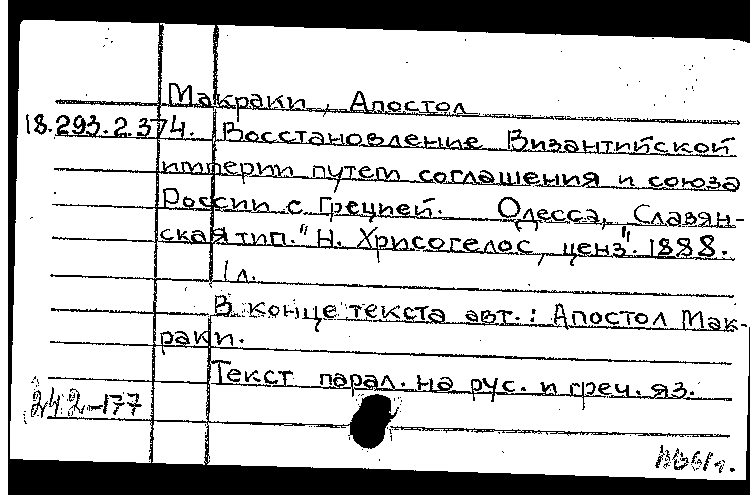 Макраки, Апостол
18.293.2.374. Восстановление Византийской
империи путем соглашения и союза
России с Грецией. Одесса, Славян-
ская тип. "Н. Хрисогелос, ценз". 1888.
1 л.
В конце текста авт.: Апостол Мак-
раки.
Текст парал. на рус. и греч. яз.
242-177